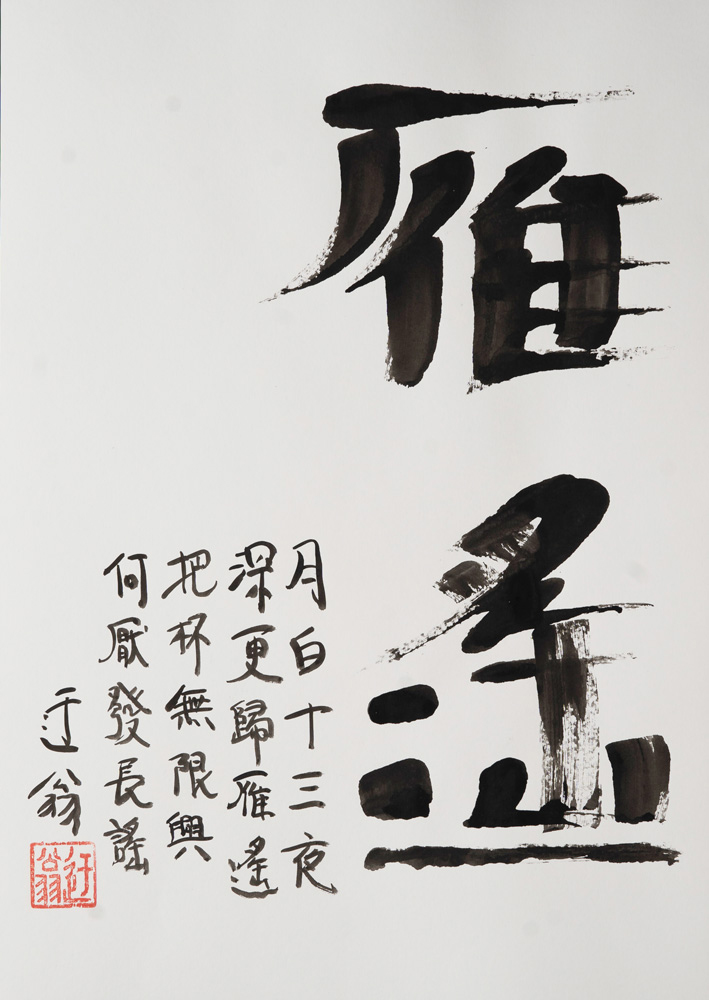 雁遙
月白十三夜
深更歸雁遙
把杯無限興
何厭發長謠
迂翁
迂翁